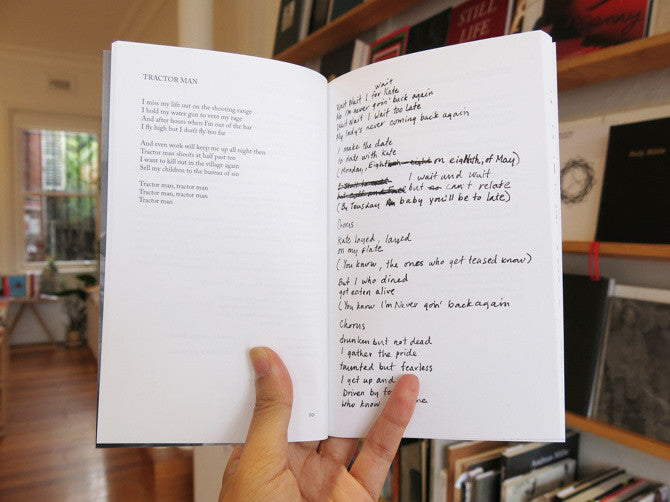 TRACTOR MAN
I miss my life out on the shooting range
I hold my water gun to vent my rage
And after hours when I'm out of the bar
I fly high but I don't fly too far
And even work will keep me up all night then
Tractor man shoots at half past ten
I want to kill out in the village again
Sell my children to the bureau of sin
Tractor man, tractor man
Tractor man, tractor man
Tractor man
wait
Wait Wait I for Kate
No I'm never goin' back again
Wait Wait I wait too late
My lady's never coming back again
I make the date
to date with Kate
(Monday, on eighth, of May)
I wait and wait
but can't relate
(By Tuesday baby you'll be to late)
Chorus
Kate layed, layed
on my plate
(You know, the ones who get teased know)
But I who dined
got eaten alive
(You know I'm Never goin' back again
Chorus
drunken but not dead
I gather the pride
taunted but fearless
I get up and
Driven by
Who know
STILL
LIFE
Holy Bible